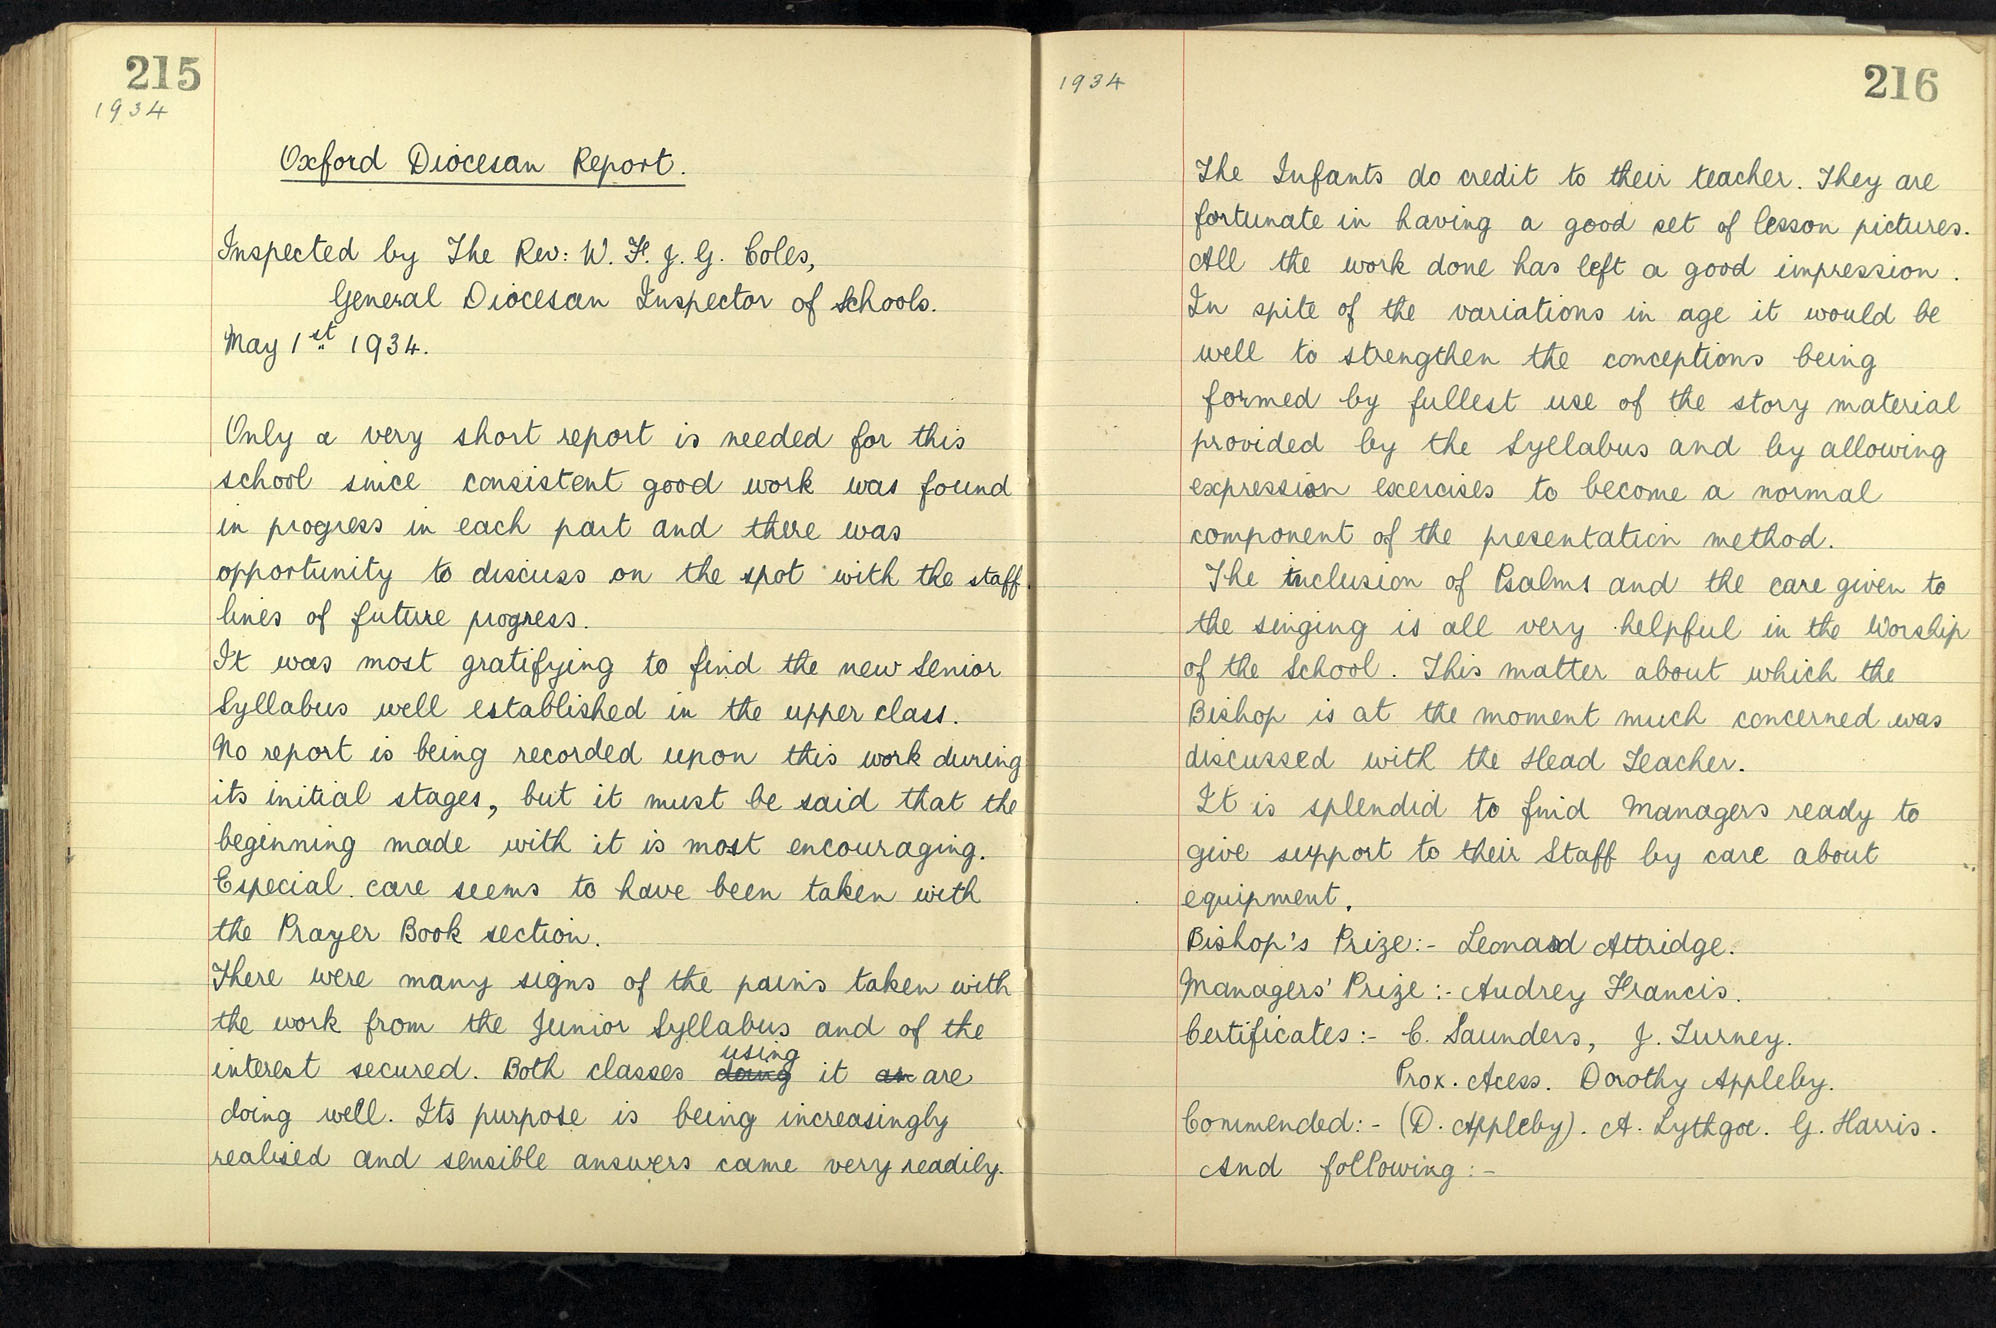 215
1934
Oxford Diocesan Report.
Inspected by The Rev: W. F. J. G. Coles,
General Diocesan Inspector of Schools.
May 1st 1934.
Only a very short report is needed for this
school since consistent good work was found
in progress in each part and there was
opportunity to discuss on the spot with the staff
lines of future progress.
It was most gratifying to find the new Senior
Syllabus well established in the upper class.
No report is being recorded upon this work during
its initial stages, but it must be said that the
beginning made with it is most encouraging.
Especial care seems to have been taken with
the Prayer Book section.
There were many signs of the pains taken with
the work from the Junior Syllabus and of the
using
interest secured. Both classes doing it an are
doing well. Its purpose is being increasingly
realised and sensible answers came very readily.
1934
216
The Infants do credit to their teacher. They are
fortunate in having a good set of lesson pictures.
All the work done has left a good impression.
In spite of the variations in age it would be
well to strengthen the conceptions being
formed by fullest use of the story material
provided by the Syllabus and by allowing
expression exercises to become a normal
component of the presentation method.
The inclusion of Psalms and the care given to
the singing is all very helpful in the Worship
of the School. This matter about which the
Bishop is at the moment much concerned was
discussed with the Head Teacher.
It is splendid to find Managers ready to
give support to their Staff by care about
equipment.
Bishop's Prize:- Leonard Attridge.
Managers' Prize:- Audrey Francis.
Certificates:- C. Saunders, J. Turney.
Prox. Acess. Dorothy Appleby.
Commended:- (D. Appleby). A. Lythgoe. G. Harris.
And following:-